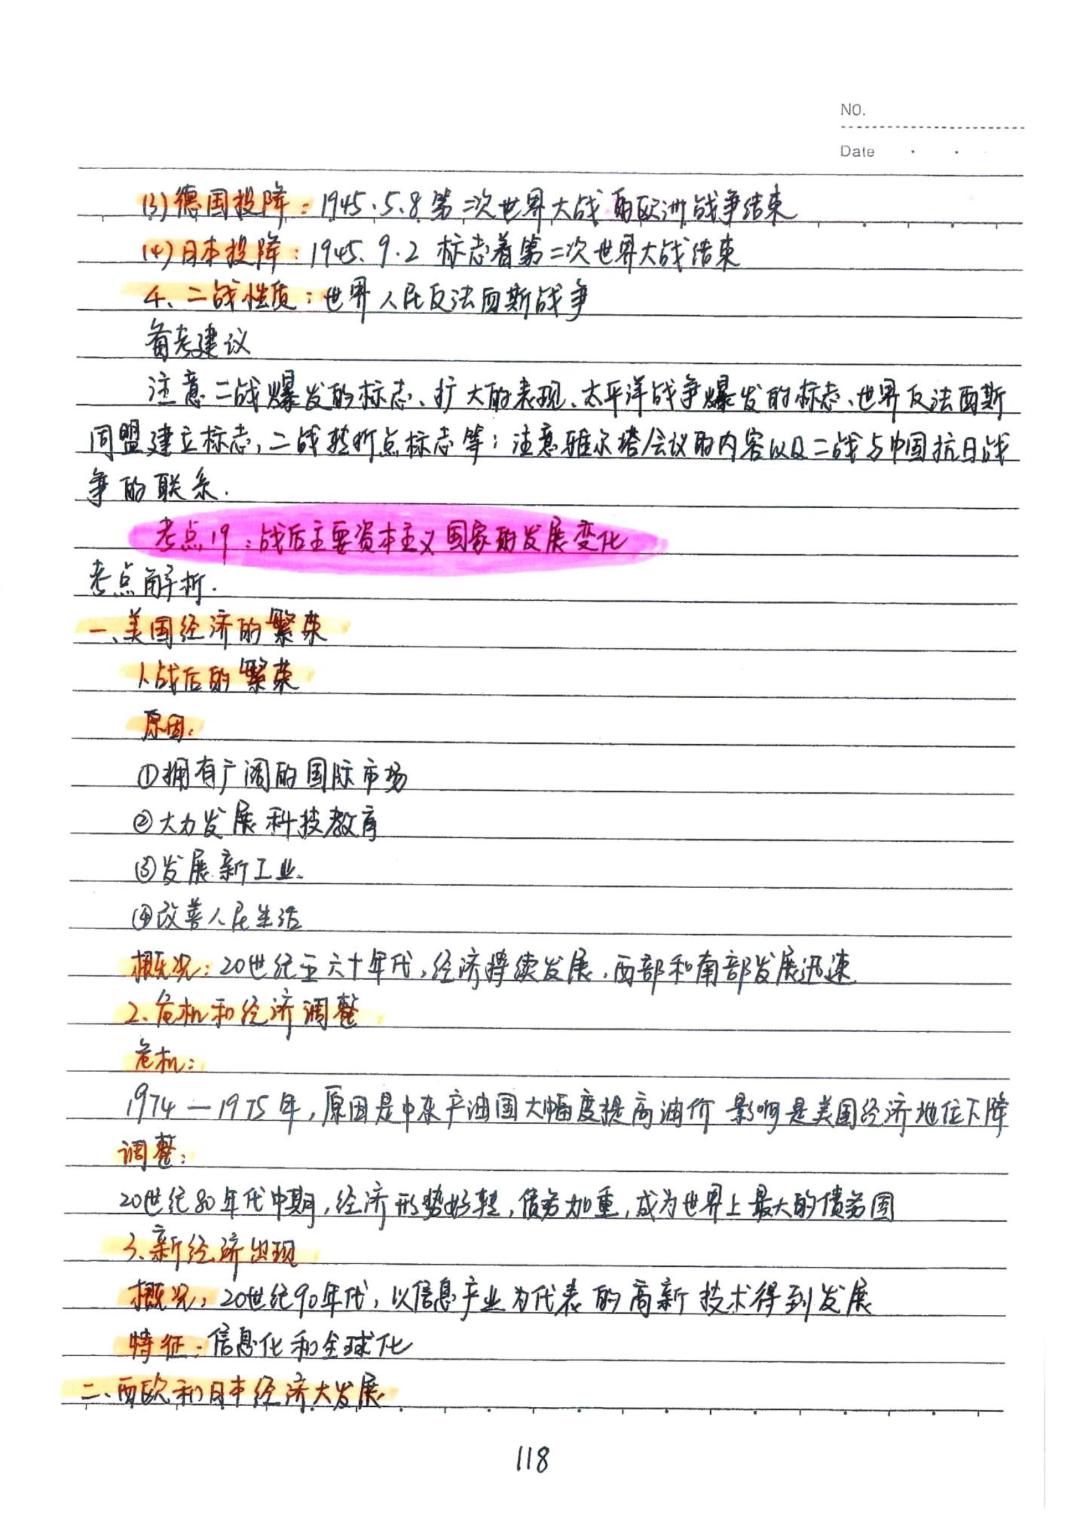 NO.
Date
(3)德国投降：1945.5.8 第二次世界大战的欧洲战争结束
(4)日本投降：1945.9.2 标志着第二次世界大战结束
4、二战性质：世界人民反法西斯战争
备考建议
注意二战爆发的标志、扩大的表现、太平洋战争爆发的标志、世界反法西斯
同盟建立标志，二战转折点标志等；注意雅尔塔会议的内容以及二战与中国抗日战
争的联系.
考点19：战后主要资本主义国家的发展变化
考点解析.
一、美国经济的繁荣
1.战后的繁荣
原因：
①拥有广阔的国际市场
②大力发展科技教育
③发展新工业.
④改善人民生活
概况：20世纪五六十年代，经济持续发展，西部和南部发展迅速
2.危机和经济调整
危机：
1974—1975年，原因是中东产油国大幅度提高油价 影响是美国经济地位下降
调整：
20世纪80年代中期，经济形势好转，债务加重，成为世界上最大的债务国
3、新经济出现
概况：20世纪90年代，以信息产业为代表的高新技术得到发展
特征：信息化和全球化
二、西欧和日本经济大发展
118